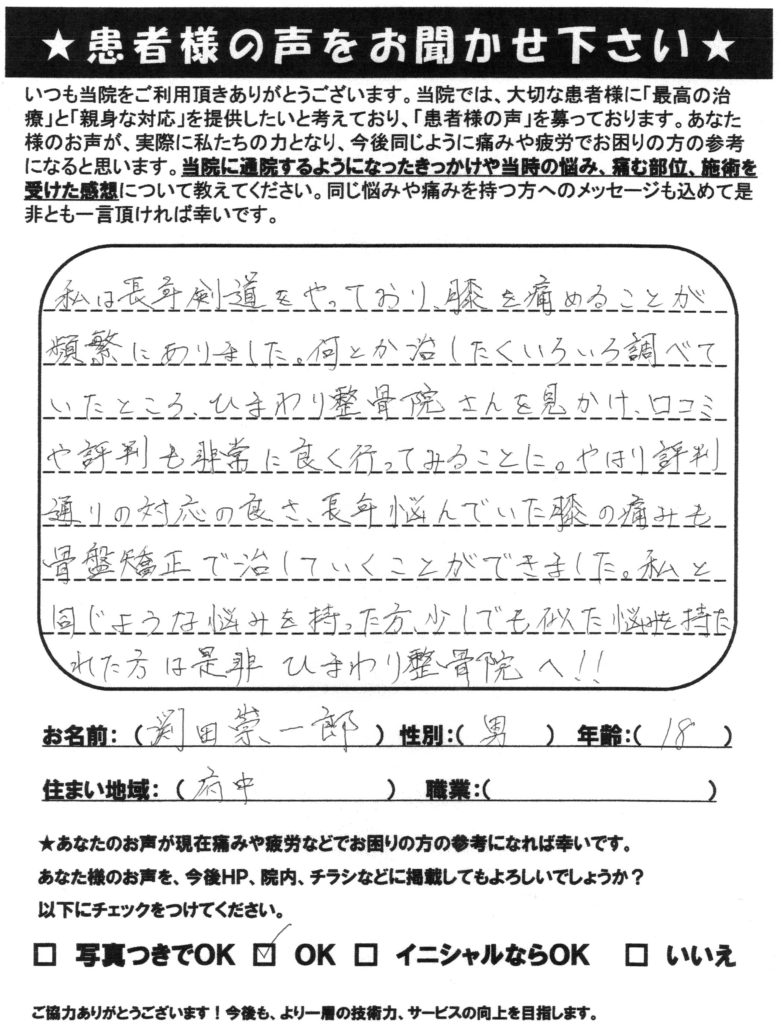 ★患者様の声をお聞かせ下さい★
いつも当院をご利用頂きありがとうございます。当院では、大切な患者様に「最高の治
療」と「親身な対応」を提供したいと考えており、「患者様の声」を募っております。あなた
様のお声が、実際に私たちの力となり、今後同じように痛みや疲労でお困りの方の参考
になると思います。当院に通院するようになったきっかけや当時の悩み、痛む部位、施術を
受けた感想について教えてください。同じ悩みや痛みを持つ方へのメッセージも込めて是
非とも一言頂ければ幸いです。
私は長年剣道をやっており、膝を痛めることが
頻繁にありました。何とか治したくいろいろ調べて
いたところ、ひまわり整骨院さんを見かけ、口コミ
や評判も非常に良く行ってみることに。やはり評判
通りの対応の良さ、長年悩んでいた膝の痛みも
骨盤矯正で治していくことができました。私と
同じような悩みを持った方、少しでも似た悩みを持た
れた方は是非 ひまわり整骨院へ!!
お名前:(渕田崇一郎) 性別:(男) 年齢:(18)
住まい地域:(府中) 職業:( )
★あなたのお声が現在痛みや疲労などでお困りの方の参考になれば幸いです。
あなた様のお声を、今後HP、院内、チラシなどに掲載してもよろしいでしょうか?
以下にチェックをつけてください。
□ 写真つきでOK ☑ OK □ イニシャルならOK □ いいえ
ご協力ありがとうございます!今後も、より一層の技術力、サービスの向上を目指します。